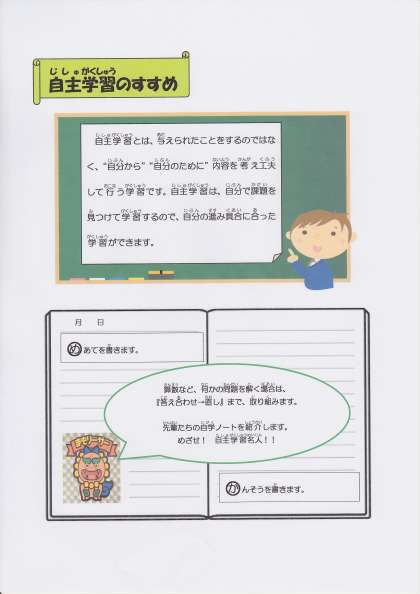 じしゅがくしゅう
自主学習のすすめ
自主学習とは、与えられたことをするのではな
く、“自分から”“自分のために”内容を考え工夫
して行う学習です。自主学習は、自分で課題を
見つけて学習するので、自分の進み具合に合った
学習ができます。
月　日
めあてを書きます。
算数など、何かの問題を解く場合は、
『答え合わせ→直し』まで、取り組みます。
先輩たちの自学ノートを紹介します。
めざせ！　自主学習名人！！
かんそうを書きます。